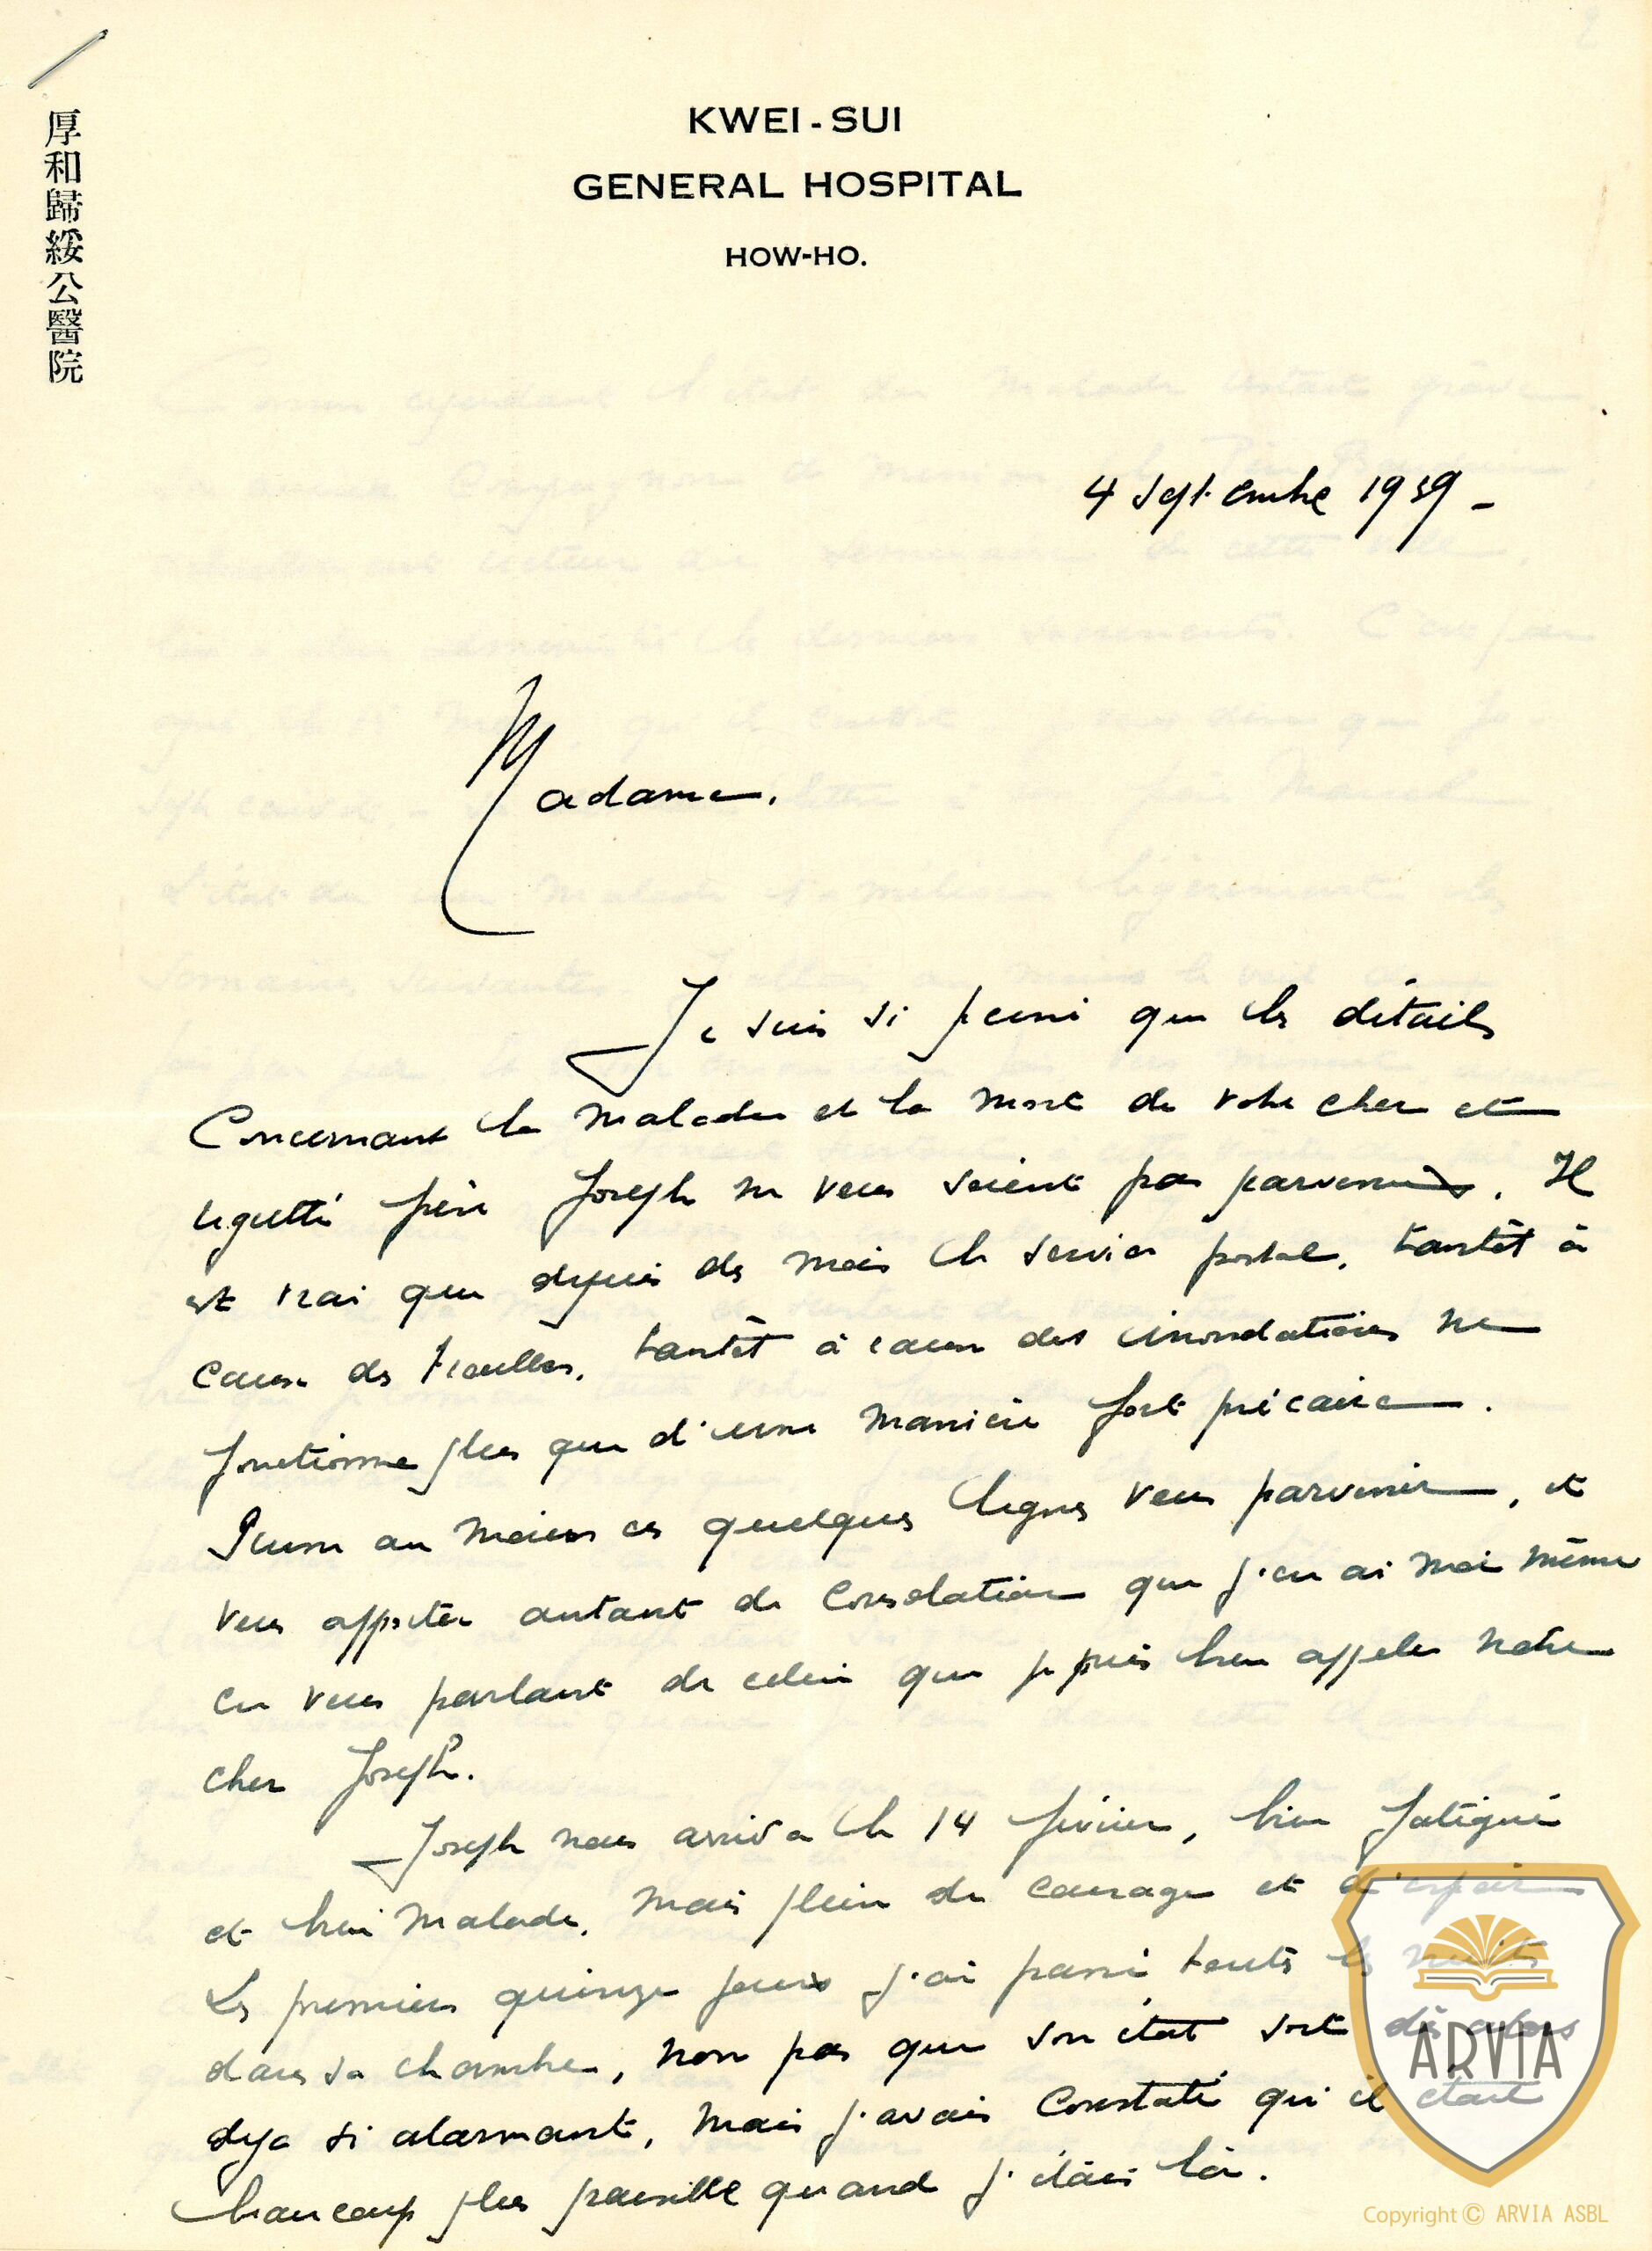 厚和歸綏公醫院
KWEI-SUI
GENERAL HOSPITAL
HOW-HO.
4 septembre 1939 -
Madame.
Je suis si peiné que les détails
concernant la maladie et la mort de votre cher et
regretté frère Joseph ne vous soient pas parvenus. Il
est vrai que depuis des mois le service postal, tantôt à
cause des troubles, tantôt à cause des inondations ne
fonctionne plus que d'une manière fort précaire.
au moins ces quelques lignes vous parvenir, et
vous apporter autant de consolation que j'en ai moi même
en vous parlant de celui que je puis bien appeler notre
cher Joseph.
Joseph nous arriva le 14 février, bien fatigué
et bien malade, mais plein de courage et d'espoir
Les premiers quinze jours j'ai passé toutes les nuits
dans sa chambre, non pas que son état soit dès alors
déjà si alarmant, mais j'avais constaté qu'il était
beaucoup plus paisible quand j'étais là.
ARVIA
Copyright © ARVIA ASBL